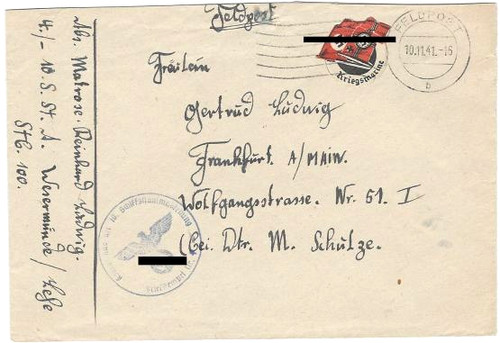 Feldpost
FELDPOST
10.11.41.-16
b
Kriegsmarine
Abs. Matrose. Reinhard Ludwig.
4./- 10. S. St. A. Wesermünde / Lehe
Stb. 100.
Fräulein
Gertrud Ludwig
Frankfurt. A/MAIN.
Wolfgangsstrasse. Nr. 51. I
(bei. Dr. M. Schulze.